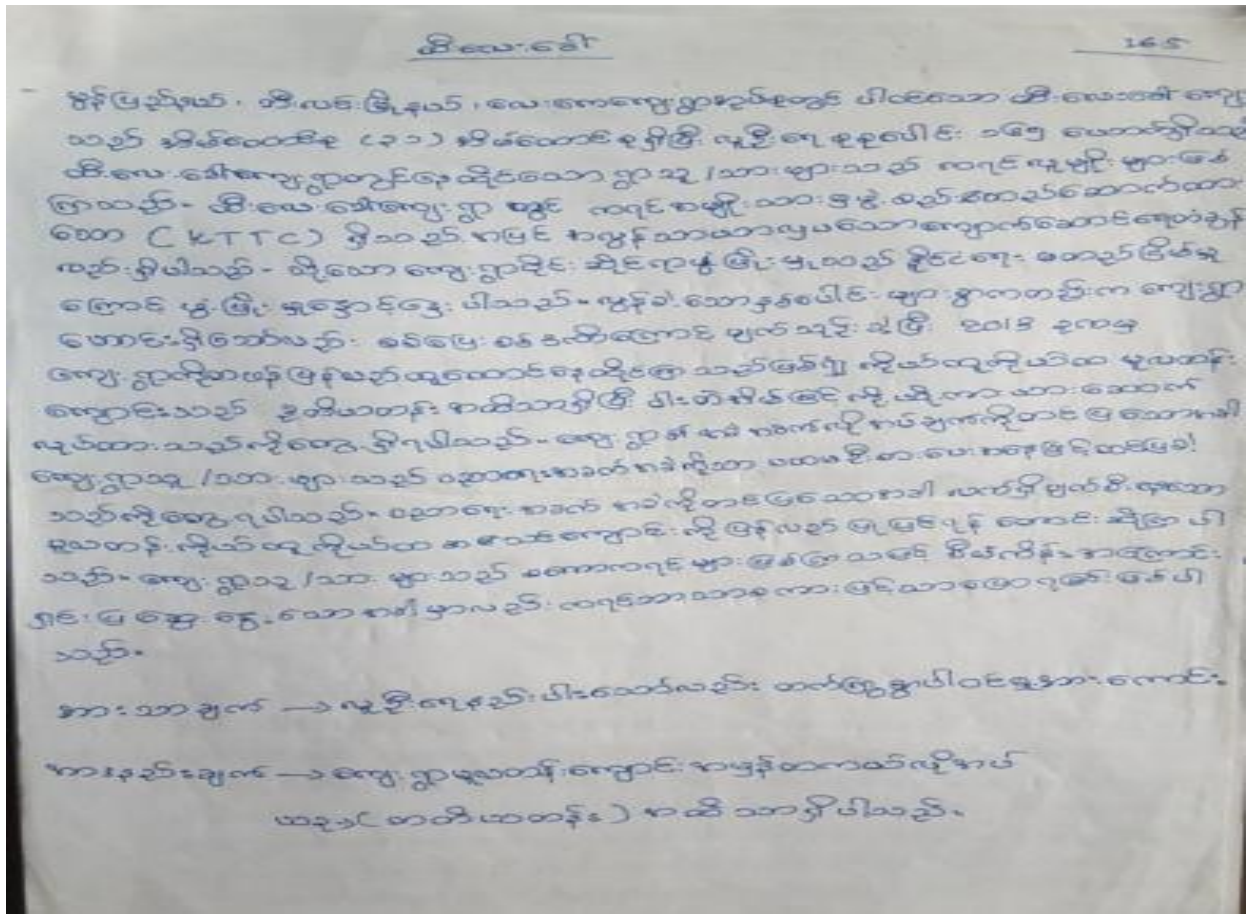 ထီးလေးခေါ် 165
မွန်ပြည်နယ်၊ ဘီးလင်းမြို့နယ်၊ လေးကေကျေးရွာအုပ်စုတွင် ပါဝင်သော ထီးလေးခေါ် ကျေး
သည် အိမ်ထောင်စု (၃၁) အိမ်ထောင်စုရှိပြီး လူဦးရေ စုစုပေါင်း ၁၆၅ ယောက်ရှိသည်
ထီးလေးခေါ်ကျေးရွာတွင်နေထိုင်သော ရွာသူ/သားများသည် ကရင်လူမျိုးများဖြစ်
ကြသည်။ ထီးလေးခေါ်ကျေးရွာ တွင် ကရင်အမျိုးသားအဖွဲ့ စည်း တည်ဆောက်ထား
သော (KTTC) ရှိသည့်အပြင် အလွန်သာယာလှပသောကျောက်ဆောင်ရေတံခွန်
လည်းရှိပါသည်။ သို့သော် ကျေးရွာပိုင်းဆိုင်ရာဖွံ့ဖြိုးမှုသည် နိုင်ငံရေး မတည်ငြိမ်မှု
ကြောင့် ဖွံ့ဖြိုးမှုနှောင့်နှေးပါသည်။ လွန်ခဲ့သောနှစ်ပေါင်းများစွာကတည်းက ကျေးရွာ
ဟောင်းရှိသော်လည်း စစ်ဘေးစစ်ဒဏ်ကြောင့် ပျက်သုဉ်းခဲ့ပြီး 2013 ခုကမှ
ကျေးရွာကိုတဖန်ပြန်လည်ထူထောင်နေထိုင်ကြသည်ဖြစ်၍ ကိုယ်ထူကိုယ်ထ မူလတန်း
ကျောင်းသည် ဒုတိယတန်းအထိသာရှိပြီး ဝါးတဲအိမ်ဖြင့် ကာယားဆောက်
လုပ်ထားသည်ကိုတွေ့ရှိရပါသည်။ ကျေးရွာ၏အခက်အခဲလိုအပ်ချက်ကိုတင်ပြသောအခါ
ကျေးရွာသူ/သားများသည် ပညာရေးအခက်အခဲကိုသာ ပထမဦးစားပေးအနေဖြင့်တင်ပြခဲ့
သည်ကိုတွေ့ရပါသည်။ ပညာရေးအခက်အခဲကိုတင်ပြသောအခါ လက်ရှိပျက်စီးနေသော
မူလတန်းကိုယ်ထူကိုယ်ထ စာသင်ကျောင်းကိုပြန်လည်ပြုပြင်ရန် တောင်းဆိုကြပါ
သည်။ ကျေးရွာသူ/သားများသည် စကောကရင်များဖြစ်ကြသဖြင့် စီမံကိန်းအကြောင်း
ရှင်းပြဆွေးနွေးသောအခါမှာလည်း ကရင်ဘာသာစကားဖြင့်သာပြောရခြင်းဖြစ်ပါ
သည်။
အားသာချက် → လူဦးရေနည်းပါးသော်လည်း တက်ကြွစွာပါဝင်မှုအားကောင်း
အားနည်းချက် → ကျေးရွာမူလတန်းကျောင်းအမှန်တကယ်လိုအပ်
ယခု (တတိယတန်း) အထိသာရှိပါသည်။